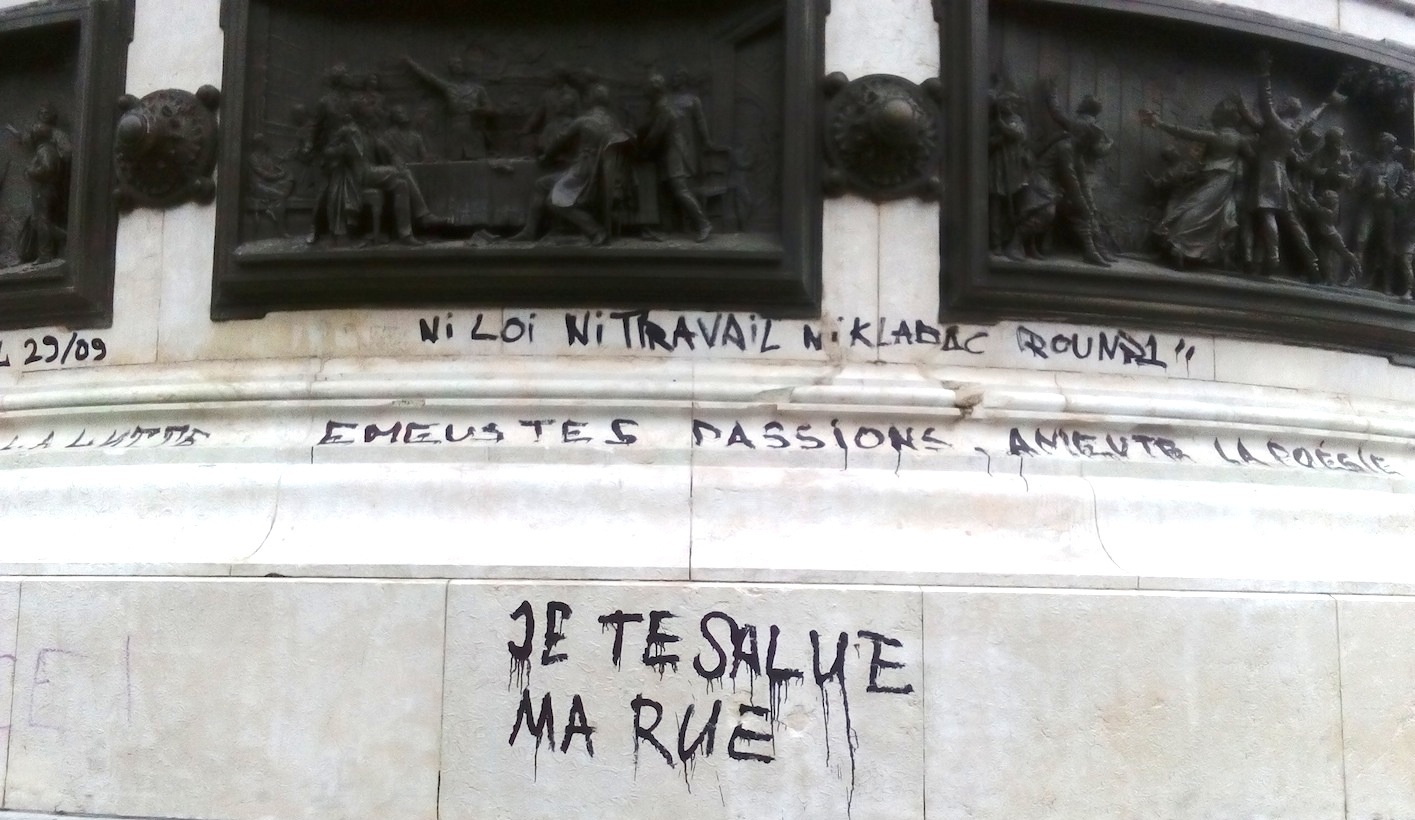 L 29/09
Ni LOi Ni TRAVAiL Ni KLABAC ROUND1"
LA LUTTE
EMEUS TES PASSIONS, AMEUTE LA POÉSIE
JE TE SALUE
MA RUE
CE !